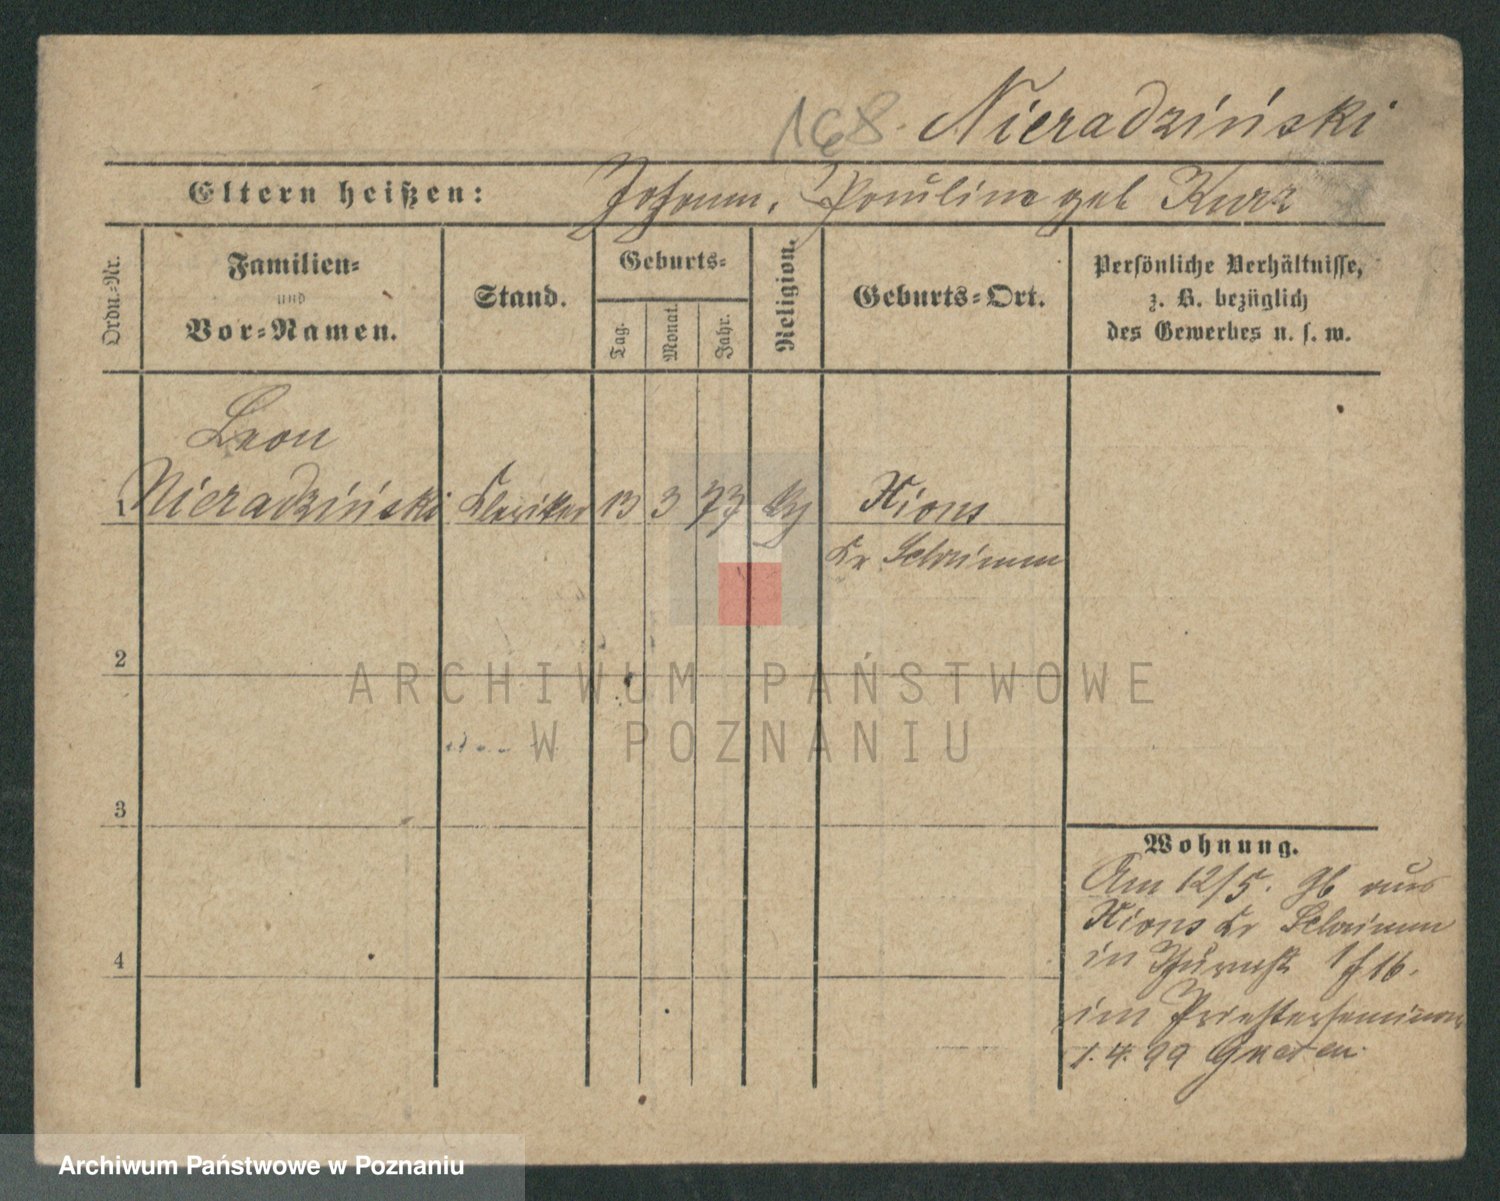 168. Nieradziński
Eltern heißen: Johann, Pauline geb Kurz
Ordn.-Nr.
Familien-
und
Vor-Namen.
Stand.
Geburts-
Tag.
Monat.
Jahr.
Religion.
Geburts-Ort.
Persönliche Verhältnisse,
z. B. bezüglich
des Gewerbes u. s. w.
Leon
1 Nieradziński Kleriker 13 3 77 Xions
Kr Schrimm
2
3
4
Wohnung.
Am 12/5. aus
Xions Kr Schrimm
in 16.
im Priesterseminar
1.4.99 Gnesen.
ARCHIWUM PAŃSTWOWE
W POZNANIU
Archiwum Państwowe w Poznaniu